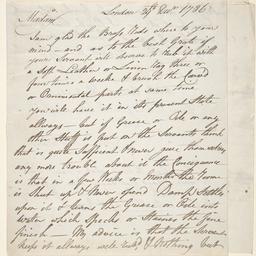 London 25th Decr 1786
Madam
I am glad the Brass Lids where to your
mind — and as to the best Grate if
your Servant will observe to rub it with
a Soft Leather or Linin Rag three or
four times a Week & brush the Carved
or Ornimental parts at same time
you will have it in its present State
allways — but if Grease or Oil or any
other Stuff is put on the Servants think
that is quite Sufficient & never give themselves
any more trouble about it the Consequence
is that in a few Weeks or Months the Room
is Shut up & Never aired Damps Settles
upon it & Jeans the Grease or Oile into
water which Specks or Staines the fine
finish — My advice is that the Servant
keeps it allways well rub'd & Nothing but